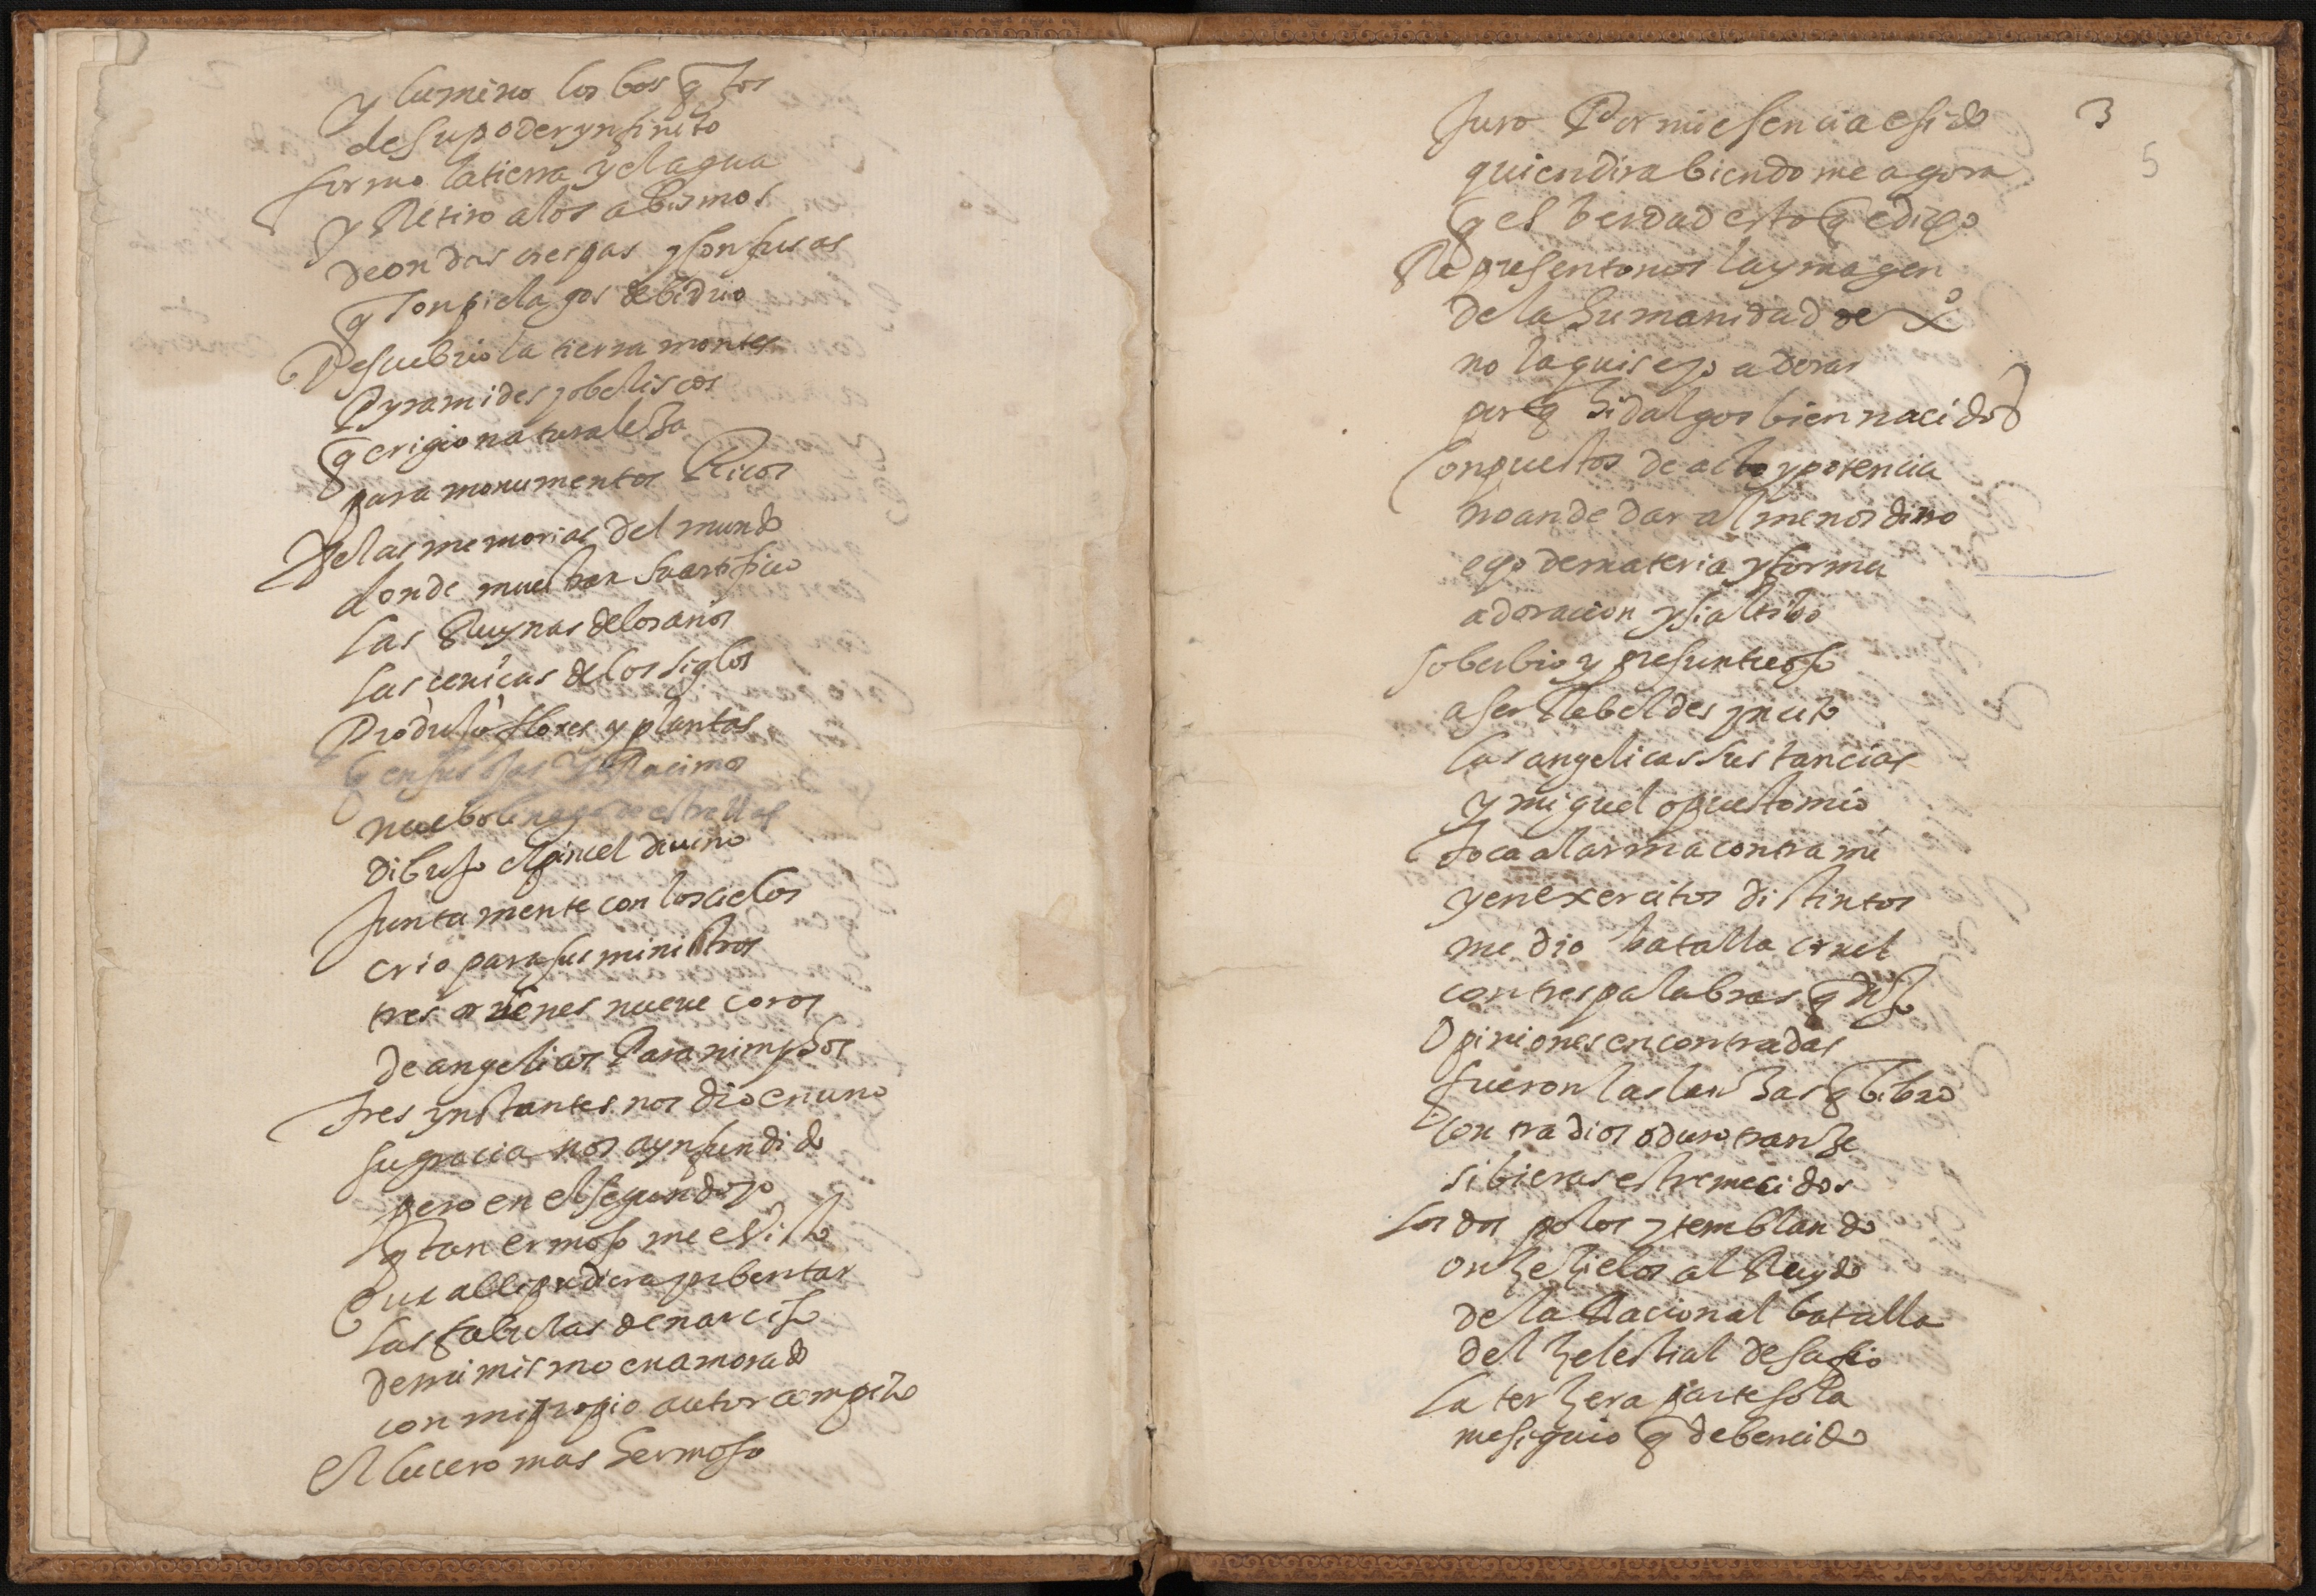 y lumino los bosqjos
de su poder ynfinito
formo la tierra y el agua
y Retiro a los abismos
de ondas crespas y confusas
q son pielagos de bidrio
Descubrio la tierra montes
Pyramides y obeliscos
q erigio naturaleza
para monumentos Ricos
De las memorias del mundo
donde muestran su artificio
las Ruynas de los años
las ceniças de los siglos
Produjo flores y plantas
q en sus ojas y Racimos
nuebo de estrellas
dibujo el pincel divino
Juntamente con los cielos
crio para sus ministros
tres ordenes nueve coros
de angelicos Paranimphos
tres ynstantes nos dio en uno
su gracia nos a ynfundido
pero en el segundo yo
q tan ermoso me e visto
Que alli pudiera ynbentar
las fabulas de narciso
de mi mismo enamorado
con mi propio autor compito
El lucero mas hermoso
3
5
Juro Por mi esencia e sido
quien dira biendome agora
q es berdad esto q e digo
Represento nos la ymagen
de la humanidad de Xo
no la quise yo adorar
porq hidalgos bien nacidos
Conpuestos de acto y potencia
no an de dar al menos dino
ego de materia y forma
adoracion y si altibo
soberbio y presuntuoso
a ser Rebeldes yncito
las angelicas sustancias
y miguel opuesto mio
toca al arma contra mi
y en exercitos distintos
me dio batalla cruel
con tres palabras q dijo
Opiniones encontradas
fueron las lanzas q bibro
contra dios o duro tranze
si bieras estremecidos
los dos polos y temblando
onze zielos al Ruydo
de la Racional batalla
del zelestial desafio
la terzera parte sola
me siguio q de bencido